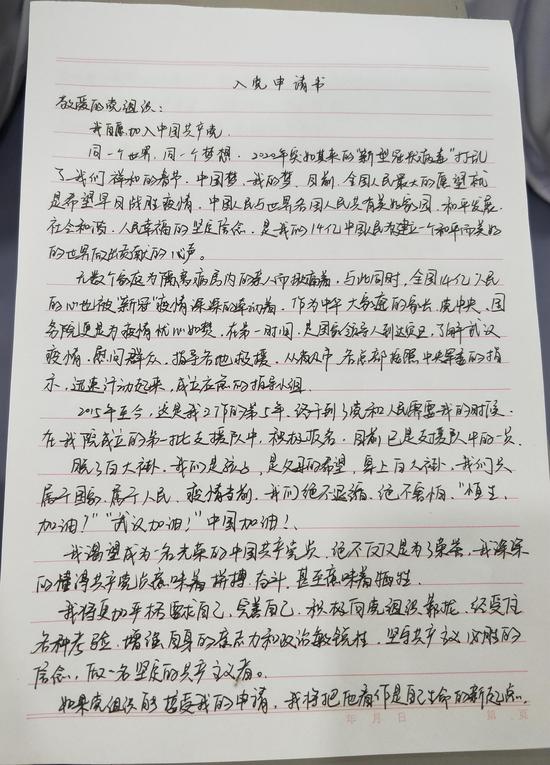 入党申请书
敬爱的党组织：
我自愿加入中国共产党.
同一个世界，同一个梦想. 2020年突如其来的"新型冠状病毒"打乱
了我们祥和的春节. 中国梦、我的梦. 目前，全国人民最大的愿望就
是希望早日战胜疫情. 中国人民与世界各国人民共有美好家园、和平发展、
社会和谐、人民幸福的坚定信念. 是我们14亿中国人民为建立一个和平而美好
的世界而出贡献的心声。
无数个家庭为隔离病房内的亲人而揪痛着，与此同时，全国14亿人民
的心也被"新冠"疫情深深的牵动着. 作为中华大家庭的家长，党中央、国
务院更是为疫情忧心如焚. 在第一时间，是国家领导人到达武汉，了解武汉
疫情、慰问群众、指导各地救援. 各点都按照中央的指
示，迅速行动起来，成立应急的指导小组.
2015年至今，这是我工作的第5年. 终于到了党和人民需要我的时候.
在我院成立的第一批支援队中，积极报名. 目前已是支援队中的一员.
脱了白大褂，我们是孩子，是父母的希望，穿上白大褂，我们只
属于国家、属于人民. 疫情当前，我们绝不退缩、绝不害怕. "恒生
加油！""武汉加油！"中国加油！.
我渴望成为一名光荣的中国共产党员，绝不仅仅是为了荣誉. 我深深
的懂得共产党员意味着拼搏、奋斗、甚至意味着牺牲.
我将更加严格要求自己、完善自己. 积极向党组织靠拢，经受住
各种考验，增强自身的意志力和政治敏锐性. 坚守共产主义必胜的
信念，做一名坚定的共产主义者。
如果党组织能接受我的申请，我将把他看作是自己生命的新起点.
年 月 日 第 页